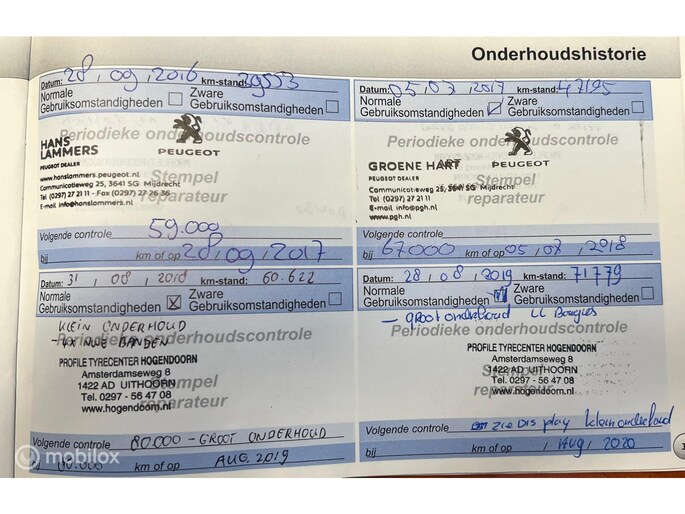 Onderhoudshistorie
Datum: 28, 09, 2016 km-stand: 29553
Normale Gebruiksomstandigheden
Zware Gebruiksomstandigheden
Periodieke onderhoudscontrole
HANS LAMMERS
PEUGEOT DEALER
PEUGEOT
www.hanslammers.peugeot.nl
Communicatieweg 25, 3641 SG Mijdrecht
Tel. (0297) 27 21 11 - Fax (0297) 27 26 36
E-mail info@hanslammers.nl
Stempel
reparateur
Volgende controle 59.000
bij km of op 28, 09, 2017
Datum: 05, 07, 2017 km-stand: 47195
Normale Gebruiksomstandigheden
Zware Gebruiksomstandigheden
Periodieke onderhoudscontrole
GROENE HART
PEUGEOT DEALER
PEUGEOT
Communicatieweg 25, 3641 SG Mijdrecht
Tel. (0297) 27 21 11
E-mail info@pgh.nl
www.pgh.nl
Stempel
reparateur
Volgende controle
bij 67000 km of op 05, 07, 2018
Datum: 31, 08, 2018 km-stand: 60.622
Normale Gebruiksomstandigheden
Zware Gebruiksomstandigheden
KLEIN ONDERHOUD
Periodieke onderhoudscontrole
BANDEN
PROFILE TYRECENTER HOGENDOORN
Amsterdamseweg 8
1422 AD UITHOORN
Tel. 0297 - 56 47 08
www.hogendoorn.nl
Stempel
reparateur
Volgende controle 80.000 - GROOT ONDERHOUD
km of op AUG. 2019
Datum: 28, 08, 2019 km-stand: 71779
Normale Gebruiksomstandigheden
Zware Gebruiksomstandigheden
- groot onderhoud Bougies
Periodieke onderhoudscontrole
PROFILE TYRECENTER HOGENDOORN
Amsterdamseweg 8
1422 AD UITHOORN
Tel. 0297 - 56 47 08
www.hogendoorn.nl
Stempel
reparateur
Volgende controle zie Display klein onderhoud
bij km of op Aug, 2020
mobilox